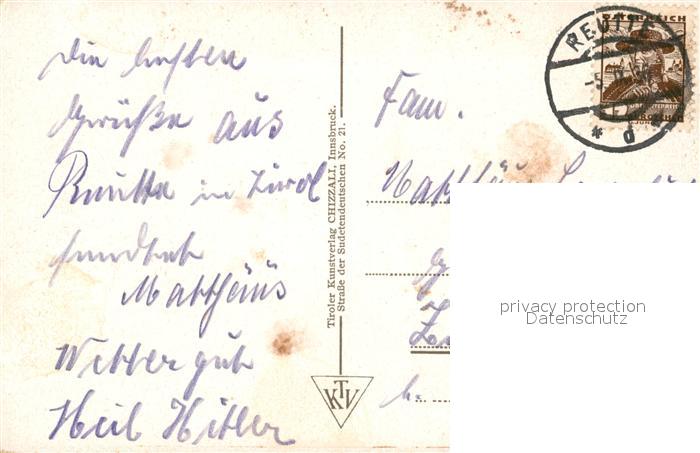 die besten
Grüße aus
Reutte in Tirol
sendet
Matthäus
Wetter gut
Heil Hitler
Tiroler Kunstverlag CHIZZALI, Innsbruck.
Straße der Sudetendeutschen No. 21.
KTV
REUTTE
ÖSTERREICH
* d
Fam.
Matthäus
privacy protection
Datenschutz